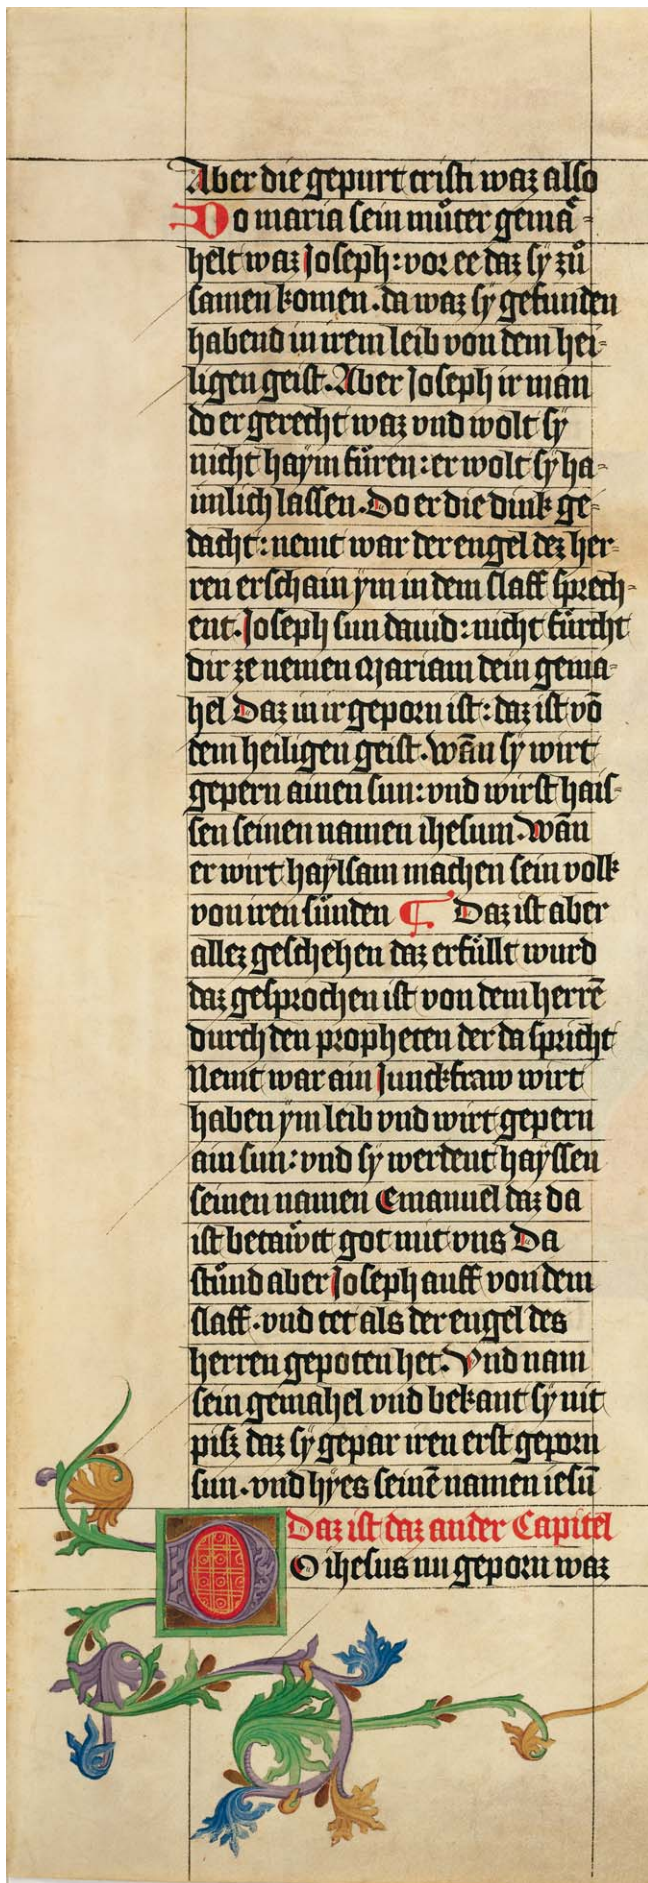 Aber die gepurt cristi waz also
Do maria sein můter gemä-
helt waz Joseph: vor ee daz sy zů
samen komen. da waz sy gefunden
habend in irem leib von dem hei-
ligen geist. Aber Joseph ir man
do er gerecht waz vnd wolt sy
nicht haym füren: er wolt sy ha-
imlich lassen. Do er die dink ge-
dacht: nemt war der engel dez her-
ren erschain ym in dem slaff sprech-
ent. Joseph sun dauid: nicht fürcht
dir ze nemen Mariam dein gema-
hel Daz in ir geporn ist: daz ist vō
dem heiligen geist. Wān sy wirt
gepern ainen sun: vnd wirst hais-
sen seinen namen ihesum. Wān
er wirt haÿlsam machen sein volk
von iren sünden ¶ Daz ist aber
allez geschehen daz erfüllt wurd
daz gesprochen ist von dem herrē
durch den propheten der da spricht
Nemt war ain Junckfraw wirt
haben ym leib vnd wirt gepern
ain sun: vnd sy werdent hayssen
seinen namen Emanuel daz da
ist betaẅtt got mit vns Da
stůnd aber Joseph auff von dem
slaff. vnd tet als der engel des
herren gepoten het. Vnd nam
sein gemahel vnd bekant sy nit
pisz daz sy gepar iren erst geporn
sun. vnd hÿes seinē namen iesū
Daz ist daz ander Capitel
DO ihesus nu geporn waz